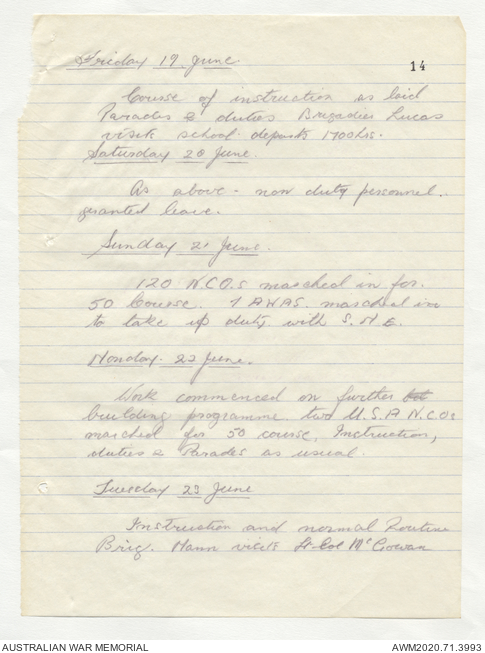 Friday 19 June
14
Course of instruction as laid
Parades & duties Brigadier Lucas
visits school. departs 1700hrs.
Saturday 20 June.
As above - non duty personnel.
granted leave.
Sunday 21 June.
120 N.C.O.s marched in for.
50 Course. 1 AWAS. marched in
to take up duty with S.M.E.
Monday. 22 June.
Work commenced on further
building programme. two U.S.A N.C.Os
marched for 50 course. Instruction,
duties & Parades as usual.
Tuesday 23 June
Instruction and normal Routine
Brig. Mann visits Lt-Col McGowan
AUSTRALIAN WAR MEMORIAL
AWM2020.71.3993